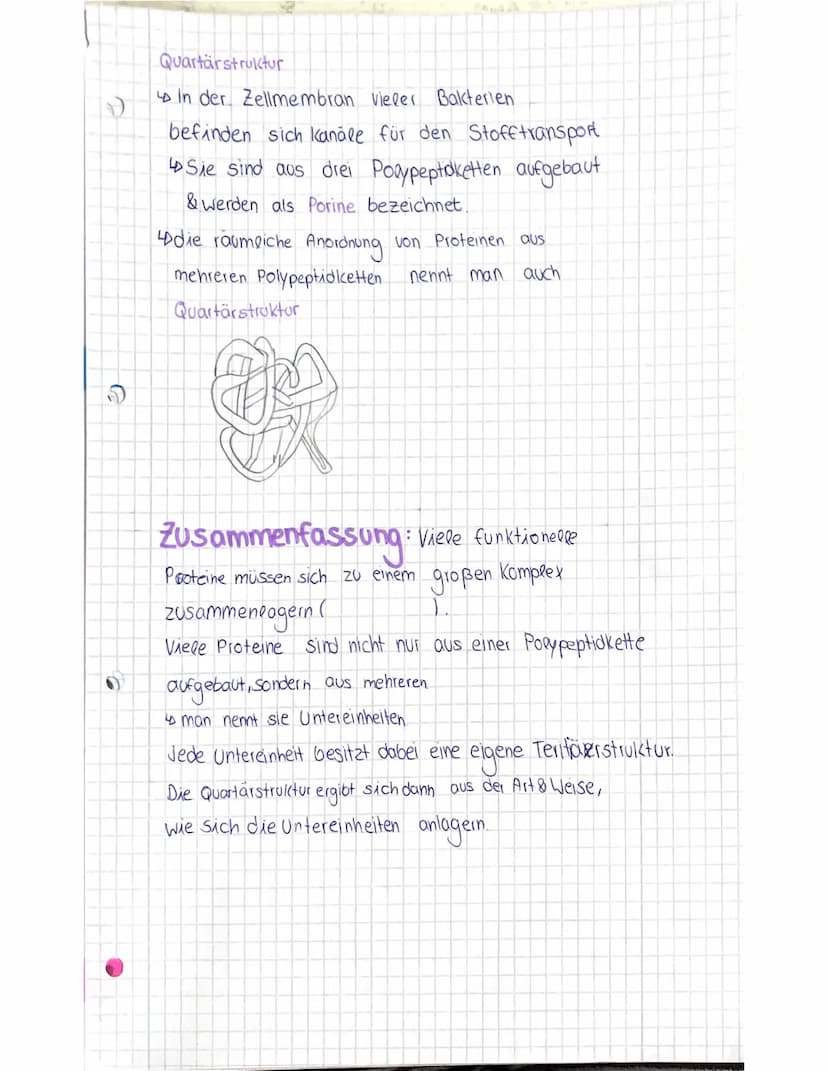 Quartärstruktur
↳ In der Zellmembran vieler Bakterien
befinden sich Kanäle für den Stofftransport
↳ Sie sind aus drei Polypeptidketten aufgebaut
& werden als Porine bezeichnet.
↳ die räumliche Anordnung von Proteinen aus
mehreren Polypeptidketten nennt man auch
Quartärstruktur
Zusammenfassung: Viele funktionelle
Proteine müssen sich zu einem großen Komplex
zusammenlagern ( ).
Viele Proteine sind nicht nur aus einer Polypeptidkette
aufgebaut, sondern aus mehreren
↳ man nennt sie Untereinheiten
Jede Untereinheit besitzt dabei eine eigene Tertiärstruktur.
Die Quartärstruktur ergibt sich dann aus der Art & Weise,
wie sich die Untereinheiten anlagern.